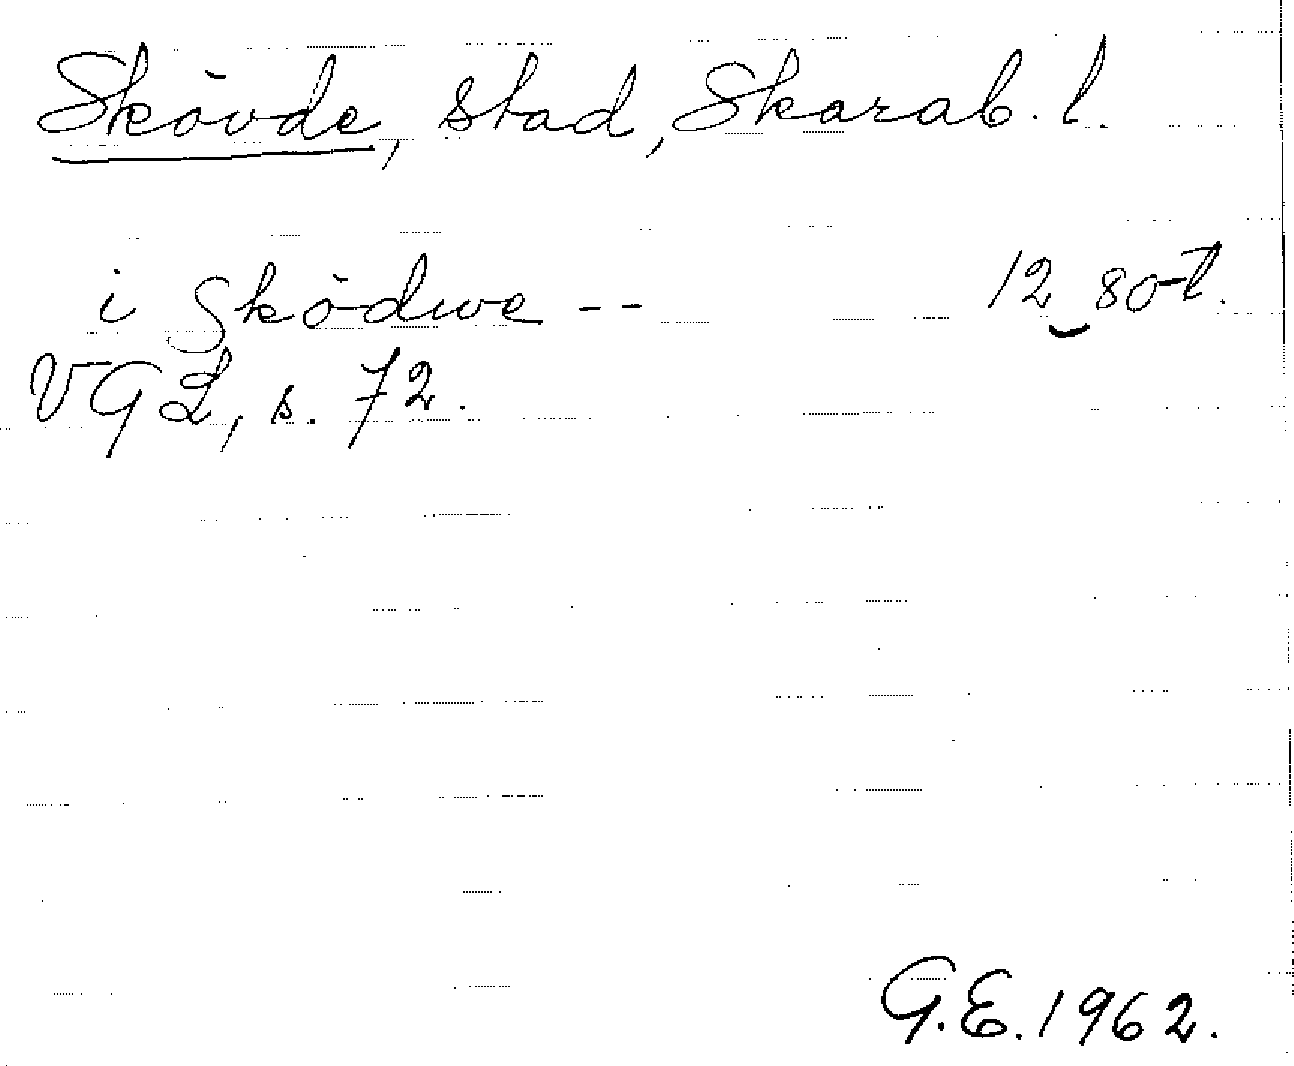 Skövde, stad, Skarab. l.
i Sködwe -- 12 80-t.
VGL, s. 72.
G.E. 1962.